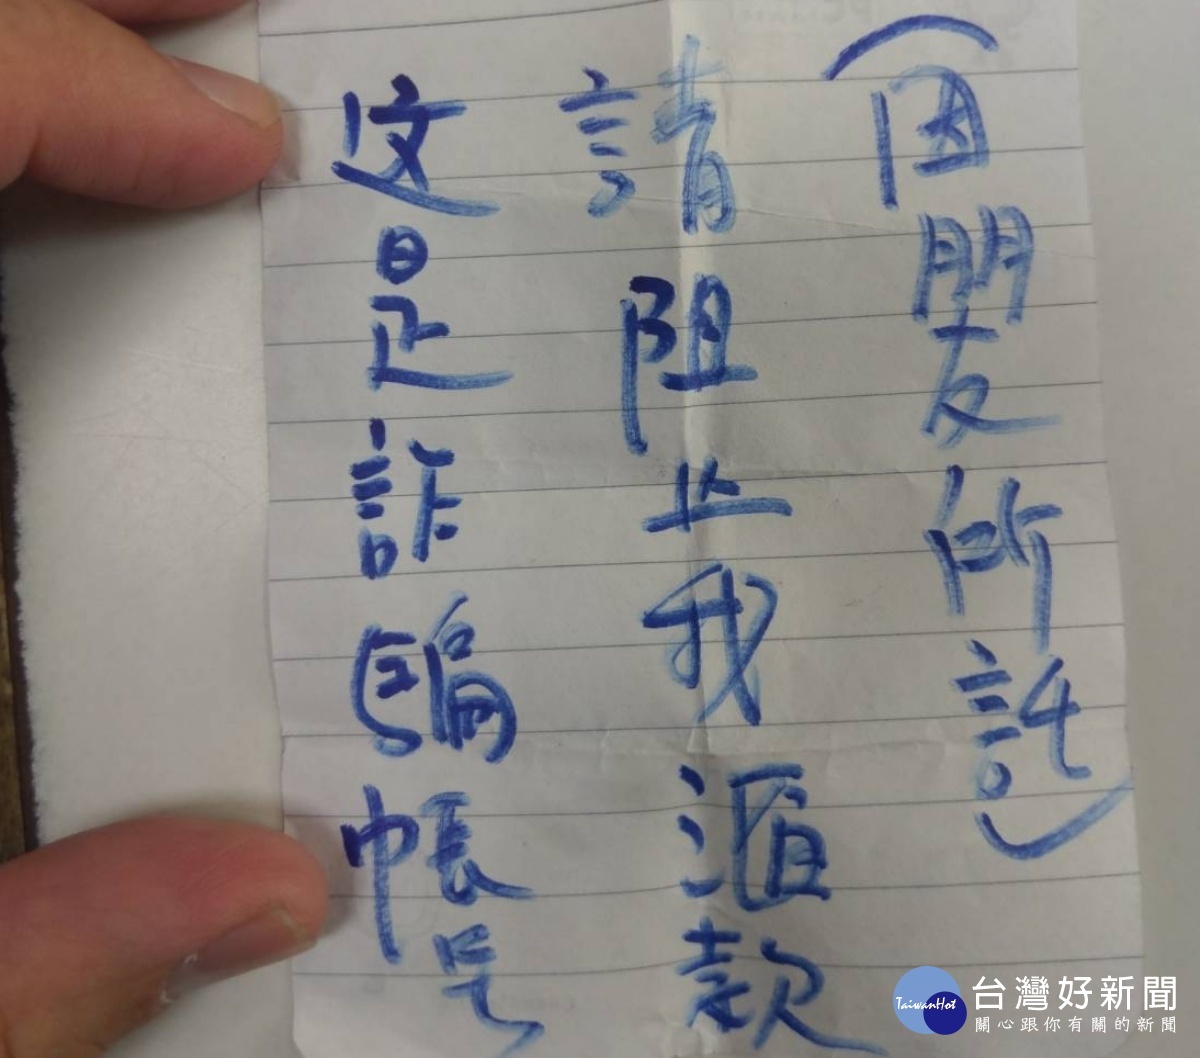 （因朋友所託）
請阻止我滙款
这是詐騙帳号
TaiwanHot
台灣好新聞
關心跟你有關的新聞